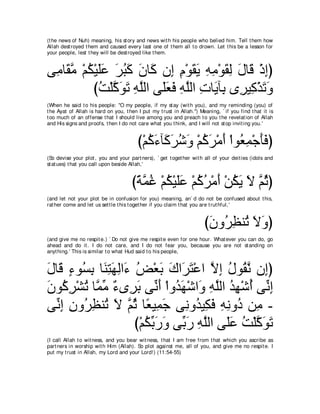 (the news of Nuh) meaning, his story and news with his people who belied him. Tell them how
Allah destroyed them and caused every last one of them all to drown. Let this be a lesson for
your people, lest they will be destroyed like them.
(إِذْ قَالَ لِقَوْمِهِ يَقَوْمِ إِن كَانَ كَبُرَ عَلَيْكُمْ مَّقَامِى
وَتَذْكِيرِى بِآيَاتِ اللَّهِ فَعَلَى اللَّهِ تَوَكَّلْتُ)
(When he said to his people: "O my people, if my stay (with you), and my reminding (you) of
the Ayat of Allah is hard on you, then I put my trust in Allah.") Meaning, `if you find that it is
too much of an offense that I should live among you and preach to you the revelation of Allah
and His signs and proofs, then I do not care what you think, and I will not stop inviting you.'
(فَأَجْمِعُوا أَمْرَكُمْ وَشُرَكَآءَكُمْ)
(So devise your plot, you and your partners), ` get together with all of your deities (idols and
statues) that you call upon beside Allah,'
(ثُمَّ لاَ يَكُنْ أَمْرُكُمْ عَلَيْكُمْ غُمَّةً)
(and let not your plot be in confusion for you) meaning, an`d do not be confused about this,
rather come and let us settle this together if you claim that you are truthful,'
(وَلاَ تُنظِرُونَ)
(and give me no respite.) ` Do not give me respite even for one hour. Whatever you can do, go
ahead and do it. I do not care, and I do not fear you, because you are not standing on
anything.' This is similar to what Hud said to his people,
(إِن نَّقُولُ إِلاَّ اعْتَرَاكَ بَعْضُ ءَالِهَتِنَا بِسُوءٍ قَالَ
إِنِّى أُشْهِدُ اللَّهِ وَاشْهَدُوا أَنِّى بَرِىءٌ مِّمَّا تُشْرِكُونَ
- مِن دُونِهِ فَكِيدُونِى جَمِيعًا ثُمَّ لاَ تُنظِرُونِ إِنِّى
تَوَكَّلْتُ عَلَى اللَّهِ رَبِّى وَرَبِّكُمْ)
(I call Allah to witness, and you bear witness, that I am free from that which you ascribe as
partners in worship with Him (Allah). So plot against me, all of you, and give me no respite. I
put my trust in Allah, my Lord and your Lord!) (11:54-55)